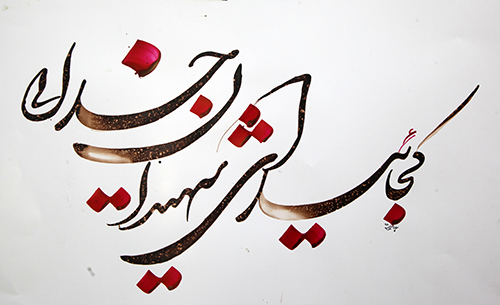 کجائید ای شهیدان خدایی